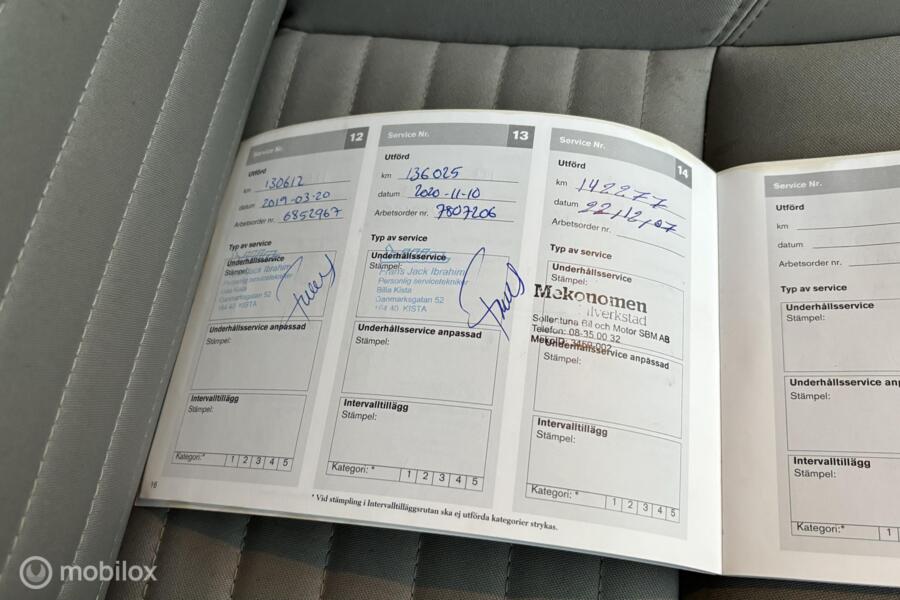 Service Nr. 12
Utförd
km 130612
datum 2019-03-20
Arbetsorder nr. 6852967
Typ av service
Underhållsservice
Stämpel:
Jack Ibrahim
Personlig servicetekniker
Billa Kista
Danmarksgatan 52
164 40 KISTA
Underhållsservice anpassad
Stämpel:
Intervalltillägg
Stämpel:
Kategori:* 1 2 3 4 5
16
Service Nr. 13
Utförd
km 136025
datum 2020-11-10
Arbetsorder nr. 7807206
Typ av service
Underhållsservice
Stämpel:
Frans Jack Ibrahim
Personlig servicetekniker
Billa Kista
Danmarksgatan 52
164 40 KISTA
Underhållsservice anpassad
Stämpel:
Intervalltillägg
Stämpel:
Kategori:* 1 2 3 4 5
Service Nr. 14
Utförd
km 142277
datum 22,12,07
Arbetsorder nr.
Typ av service
Underhållsservice
Stämpel:
Mekonomen
Bilverkstad
Sollentuna Bil och Motor SBM AB
Telefon: 08-35 00 32
MekoID: 3459-002
Underhållsservice anpassad
Stämpel:
Intervalltillägg
Stämpel:
Kategori:* 1 2 3 4 5
* Vid stämpling i Intervalltilläggsrutan ska ej utförda kategorier strykas.
Service Nr.
Utförd
km
datum
Arbetsorder nr.
Typ av service
Underhållsservice
Stämpel:
Underhållsservice
Stämpel:
Intervalltillägg
Stämpel:
Kategori:* 1
mobilox